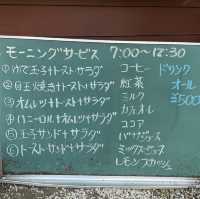 モーニングサービス 7:00〜12:30
①ゆで玉子+トースト+サラダ
②目玉焼き+トースト+サラダ
③オムレツ+トースト+サラダ
④バニーロール+オムレツ+サラダ
⑤玉子サンド+サラダ
⑥トーストサンド+サラダ
コーヒー
紅茶
ミルク
カフェオレ
ココア
バナナジュース
ミックスジュース
レモンスカッシュ
ドリンク
オール
¥500